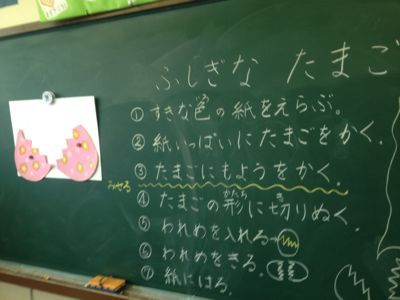 ふしぎな たまご
①すきな色の紙をえらぶ。
②紙いっぱいにたまごをかく。
③たまごにもようをかく。
みせる
かたち き
④たまごの形に切りぬく。
⑤われめを入れる→
⑥われめをきる。
⑦紙にはる。